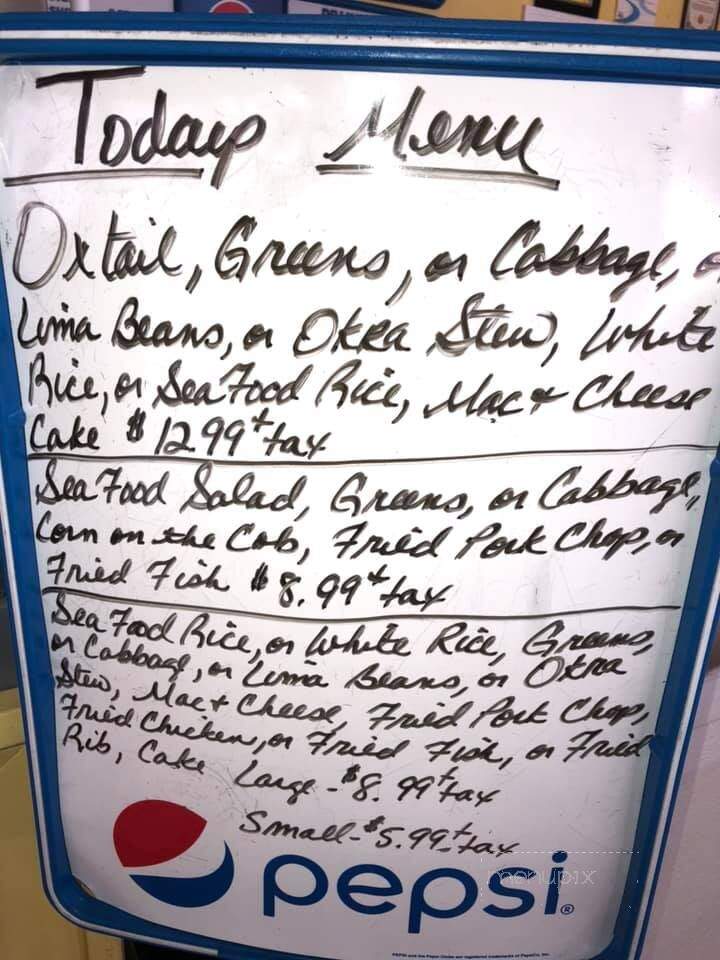 Todays Menu
Oxtail, Greens, or Cabbage, o
Lima Beans, or Okra Stew, White
Rice, or Sea Food Rice, Mac + Cheese
Cake $12.99 + tax
Sea Food Salad, Greens, or Cabbage,
Corn on the Cob, Fried Pork Chop, or
Fried Fish $8.99 + tax
Sea Food Rice, or White Rice, Greens,
or Cabbage, or Lima Beans, or Okra
Stew, Mac + Cheese, Fried Pork Chop,
Fried Chicken, or Fried Fish, or Fried
Rib, Cake Large - $8.99 + tax
Small - $5.99 + tax
menupix
pepsi®